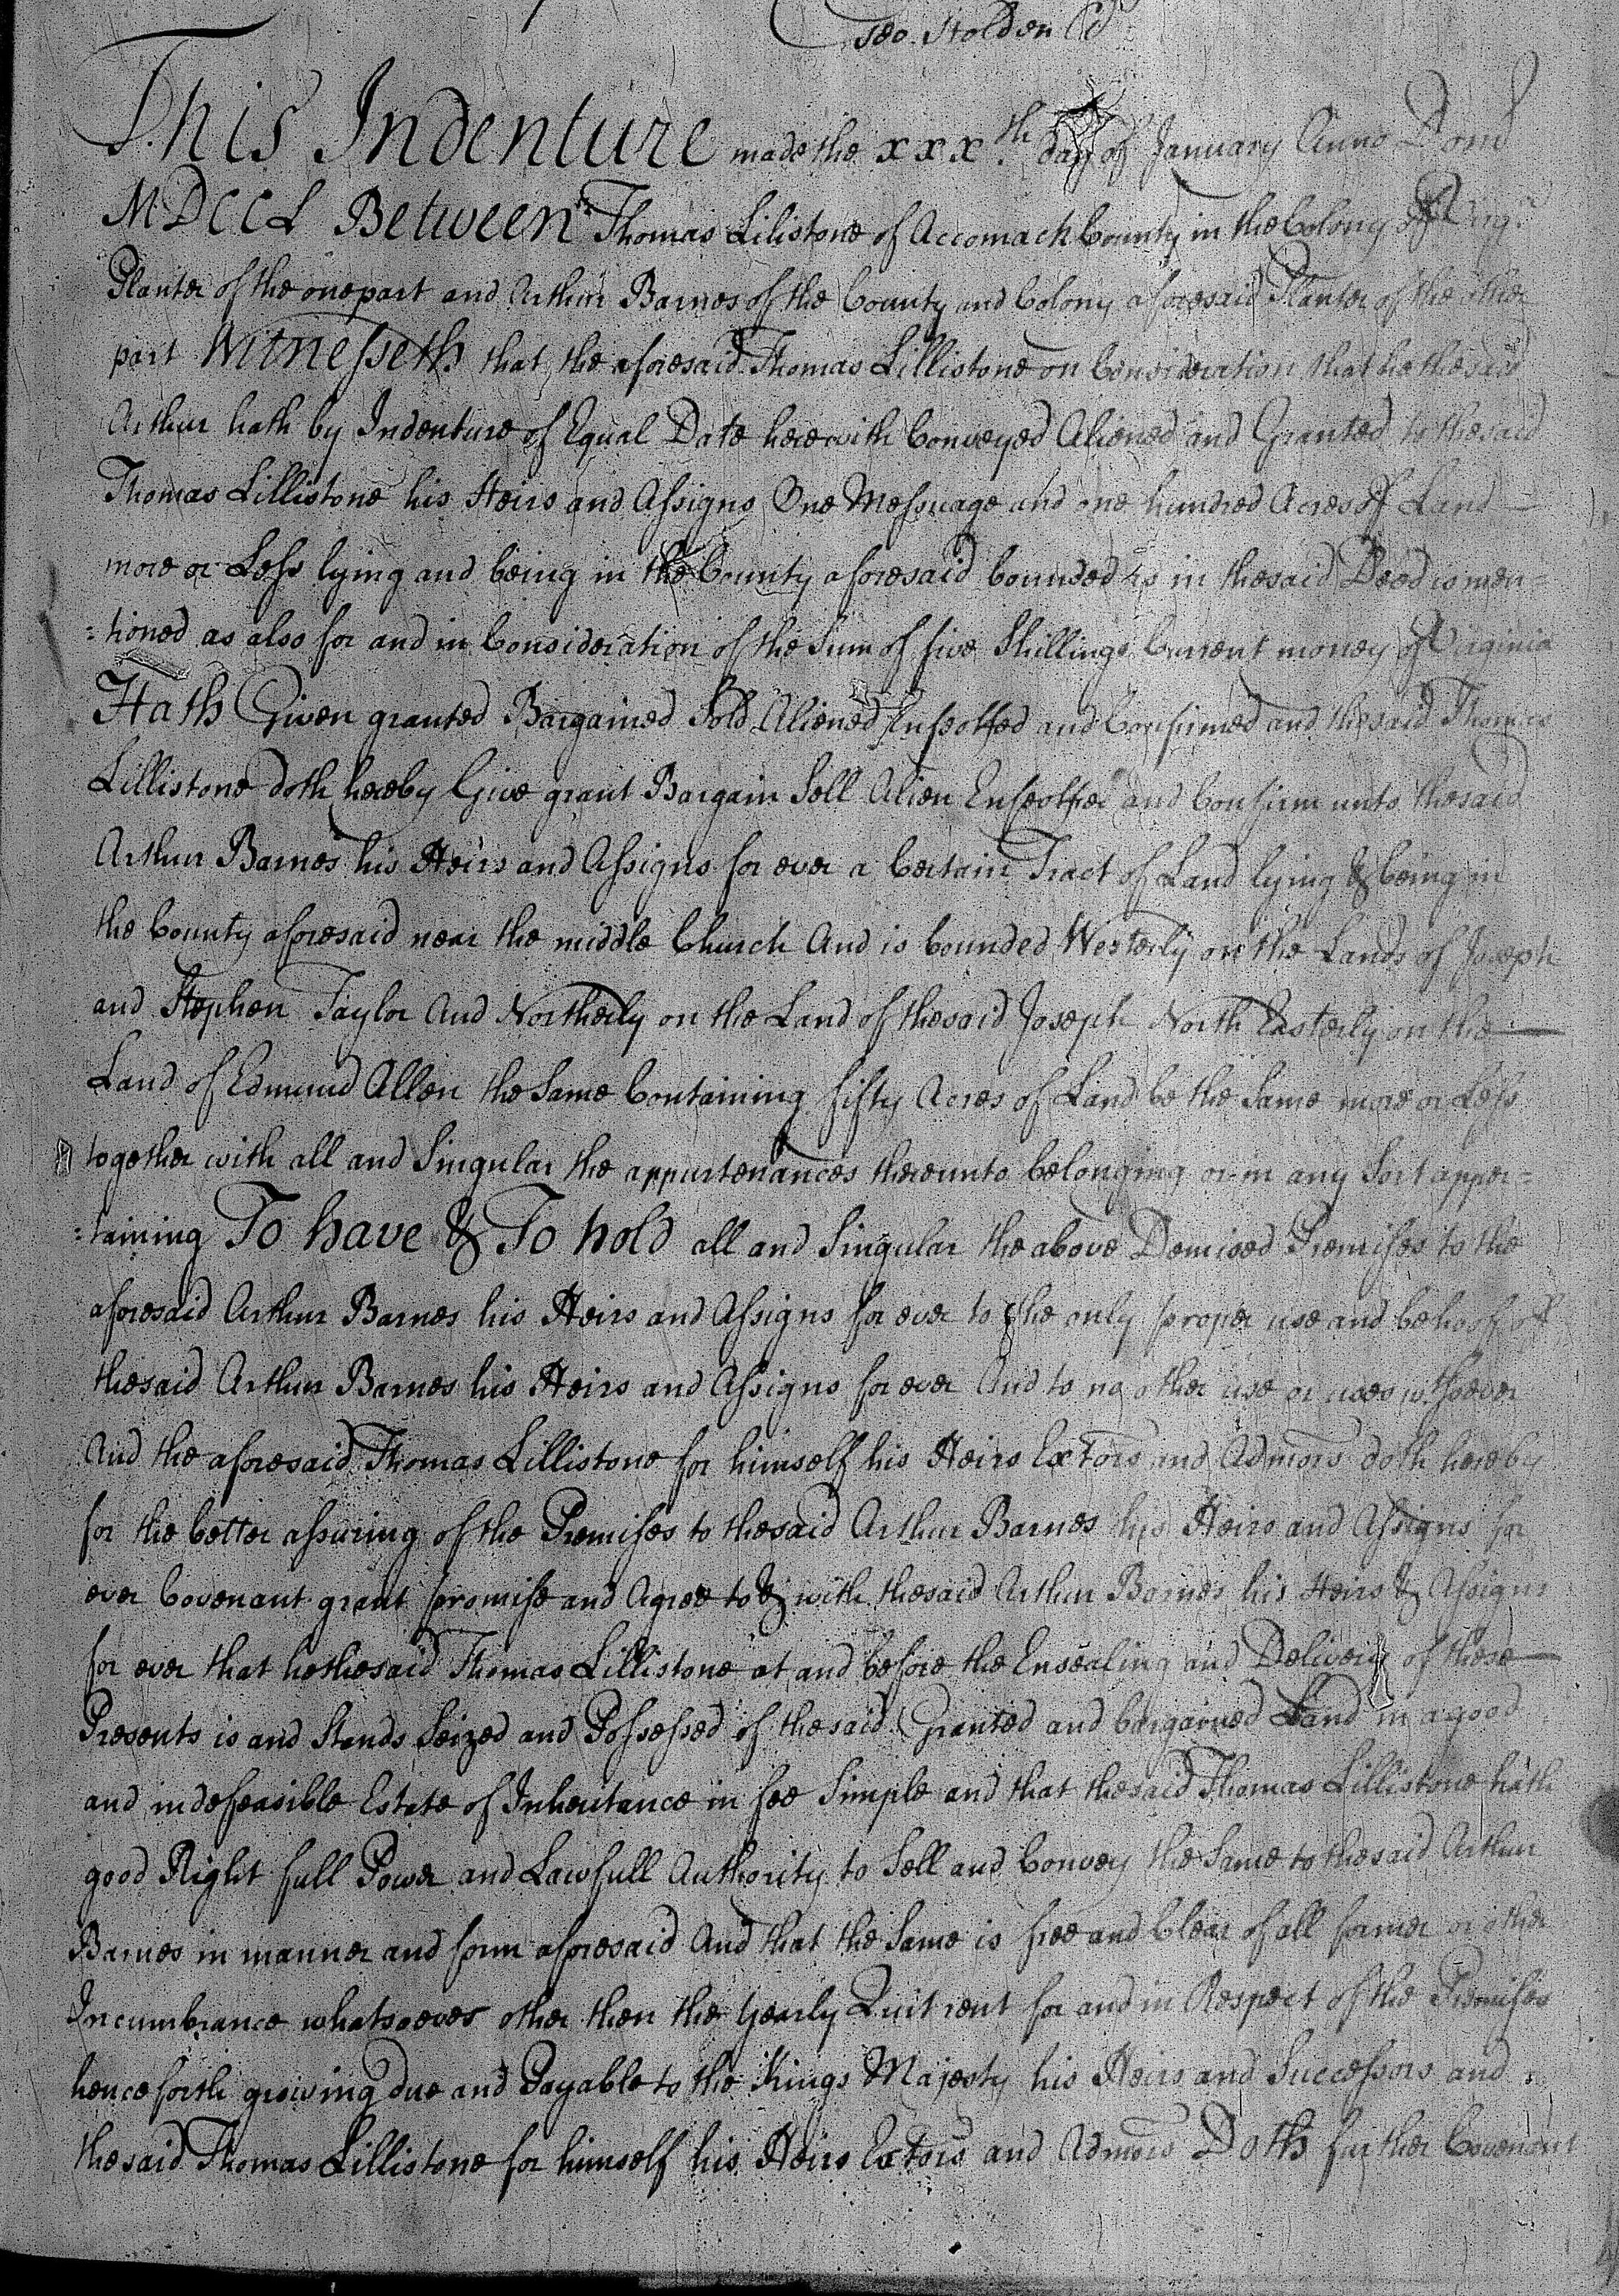 Geo. Holden Cl
This Indenture made the xxx.th day of January Anno Dom
MDCCL Between Thomas Lilistone of Accomack County in the Colony of Virg.
Planter of the one part and Arthur Barnes of the County and Colony aforesaid Planter of the other
part Witnesseth that the aforesaid Thomas Lillistone on Consideration that he the said
Arthur hath by Indenture of Equal Date herewith Conveyed Aliened and Granted to the said
Thomas Lillistone his Heirs and Assigns One Messuage and one hundred Acres of Land
more or Less lying and being in the County aforesaid bounded as in the said Deed is men=
=tioned as also for and in Consideration of the Sum of five Shillings Current money of Virginia
Hath Given granted Bargained Sold Aliened Enfeoffed and Confirmed and the said Thomas
Lillistone doth hereby Give grant Bargain Sell Alien Enfeoffee and Confirm unto the said
Arthur Barnes his Heirs and Assigns for ever a Certain Tract of Land lying & being in
the County aforesaid near the middle Church And is bounded Westerly on the Lands of Joseph
and Stephen Taylor And Northerly on the Land of the said Joseph North Easterly on the
Land of Edmund Allen the Same Containing fifty Acres of Land be the Same more or Less
together with all and Singular the appurtenances thereunto belonging or in any Sort apper=
=taining To have & To hold all and Singular the above Demised Premises to the
aforesaid Arthur Barnes his Heirs and Assigns for ever to the only proper use and behooff of
the said Arthur Barnes his Heirs and Assigns for ever And to no other use or uses w.tsoever
And the aforesaid Thomas Lillistone for himself his Heirs Extors and Admors doth hereby
for the better assuring of the Premises to the said Arthur Barnes his Heirs and Assigns for
ever Covenant grant promise and Agree to & with the said Arthur Barnes his Heirs & Assigns
for ever that he the said Thomas Lillistone at and before the Ensealing and Delivery of these
Presents is and Stands Seized and Possessed of the said Granted and bargained Land in a good
and indefeasible Estate of Inheritance in fee Simple and that the said Thomas Lillistone hath
good Right full Power and Lawfull Authority to Sell and Convey the Same to the said Arthur
Barnes in manner and form aforesaid And that the Same is free and Clear of all former or other
Incumbrance whatsoever other then the Yearly Quit rent for and in Respect of the Premises
henceforth growing due and Payable to the Kings Majesty his Heirs and Successors and
the said Thomas Lillistone for himself his Heirs Extors and Admors Doth further Covenant